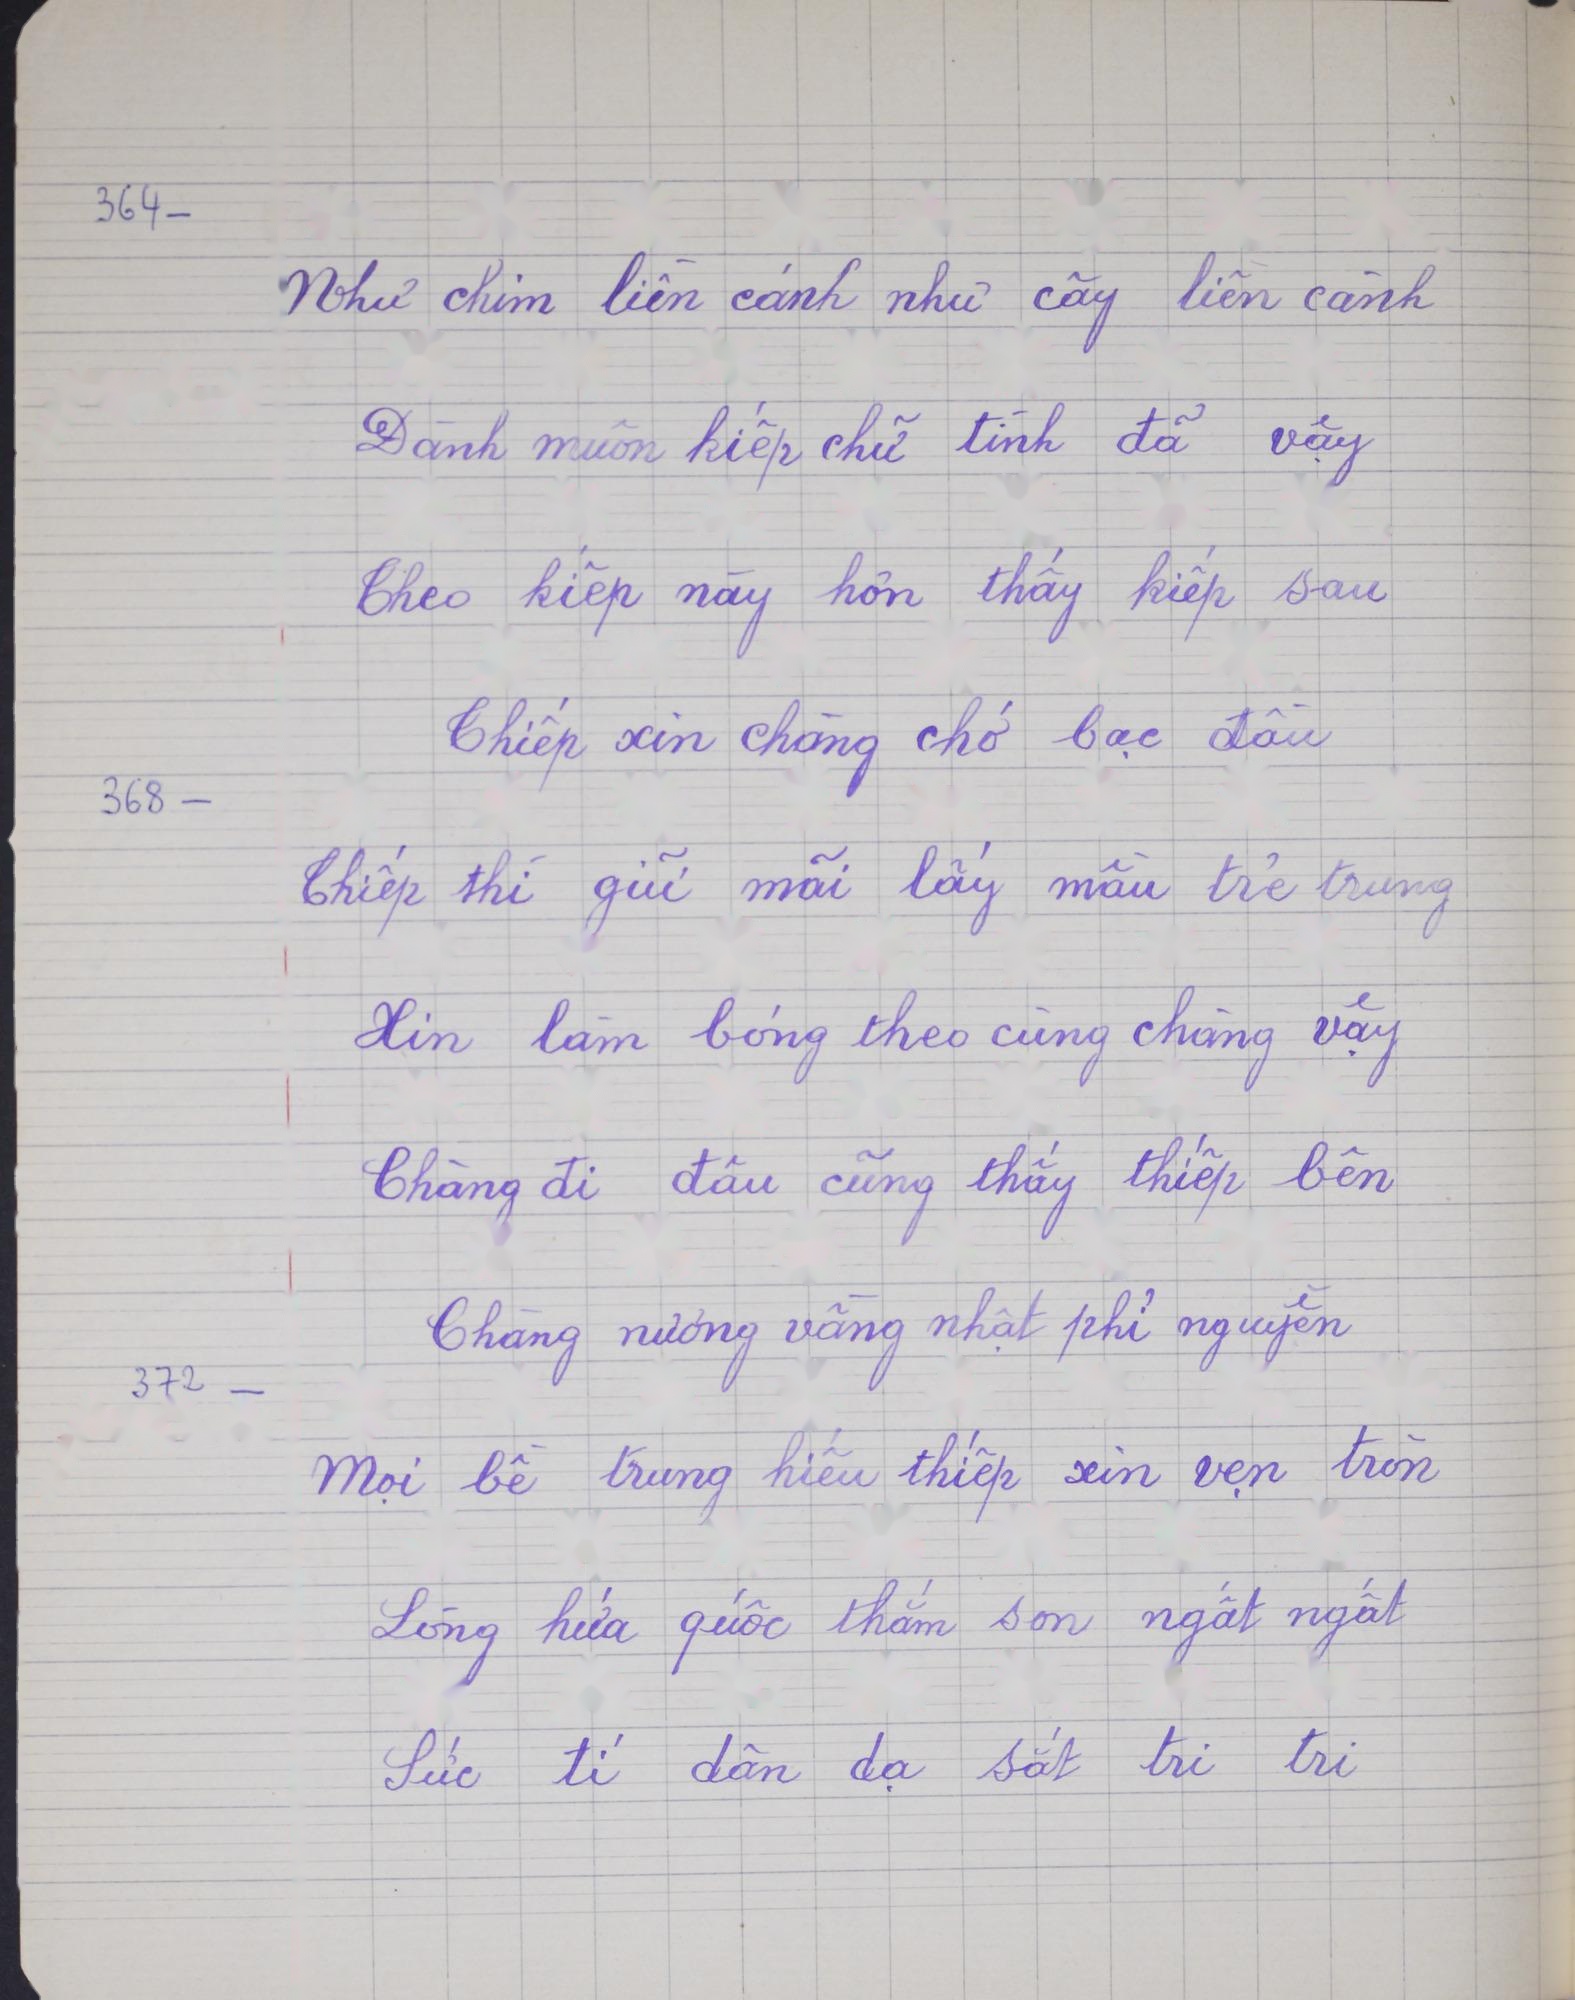 364-
Như chim liền cánh như cây liền cành
Dành muôn kiếp chữ tình đã vậy
Theo kiếp này hơn thấy kiếp sau
Thiếp xin chàng chớ bạc đầu
368-
Thiếp thì giữ mãi lấy mầu trẻ trung
Xin làm bóng theo cùng chàng vậy
Chàng đi đâu cũng thấy thiếp bên
Chàng nương vầng nhật phỉ nguyền
372-
Mọi bề trung hiếu thiếp xin vẹn tròn
Lòng hứa quốc thắm son ngắt ngắt
Sức tí dân dạ sắt tri tri